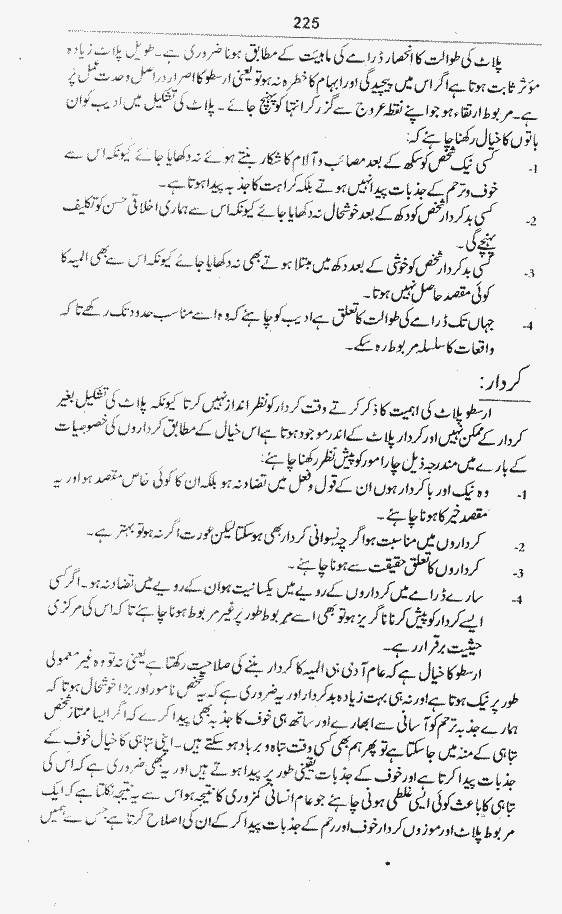 225
پلاٹ کی طوالت کا انحصار ڈرامے کی ماہیئت کے مطابق ہونا ضروری ہے۔ طویل پلاٹ زیادہ
مؤثر ثابت ہوتا ہے اگر اس میں پیچیدگی اور ابہام کا خطرہ نہ ہو تو یعنی ارسطو کا اصرار دراصل وحدت عمل پر
ہے۔ مربوط ارتقاء ہو جو اپنے نقطہ عروج سے گزر کر انتہا کو پہنچ جائے۔ پلاٹ کی تشکیل میں ادیب کو ان
باتوں کا خیال رکھنا چاہئے کہ:
1- کسی نیک شخص کو سکھ کے بعد مصائب و آلام کا شکار بنتے ہوئے نہ دکھایا جائے کیونکہ اس سے
خوف و ترحم کے جذبات پیدا نہیں ہوتے بلکہ کراہت کا جذبہ پیدا ہوتا ہے۔
2- کسی بدکردار شخص کو دکھ کے بعد خوشحال نہ دکھایا جائے کیونکہ اس سے ہماری اخلاقی حسن کو تکلیف
پہنچے گی۔
3- کسی بدکردار شخص کو خوشی کے بعد دکھ میں مبتلا ہوتے بھی نہ دکھایا جائے کیونکہ اس سے بھی المیہ کا
کوئی مقصد حاصل نہیں ہوتا۔
4- جہاں تک ڈرامے کی طوالت کا تعلق ہے ادیب کو چاہئے کہ وہ اسے مناسب حدود تک رکھے تا کہ
واقعات کا سلسلہ مربوط رہ سکے۔
کردار:
ارسطو پلاٹ کی اہمیت کا ذکر کرتے وقت کردار کو نظر انداز نہیں کرتا کیونکہ پلاٹ کی تشکیل بغیر
کردار کے ممکن نہیں اور کردار پلاٹ کے اندر موجود ہوتا ہے اس خیال کے مطابق کرداروں کی خصوصیات
کے بارے میں مندرجہ ذیل چار امور کو پیش نظر رکھنا چاہئے:
1- وہ نیک اور باکردار ہوں ان کے قول و فعل میں تضاد نہ ہو بلکہ ان کا کوئی خاص مقصد ہو اور یہ
مقصد خیر کا ہونا چاہئے۔
2- کرداروں میں مناسبت ہو اگر چہ نسوانی کردار بھی ہو سکتا لیکن عورت اگر نہ ہو تو بہتر ہے۔
3- کرداروں کا تعلق حقیقت سے ہونا چاہئے۔
4- سارے ڈرامے میں کرداروں کے رویے میں یکسانیت ہو ان کے رویے میں تضاد نہ ہو۔ اگر کسی
ایسے کردار کو پیش کرنا ناگریز ہو تو بھی اسے مربوط طور پر غیر مربوط ہونا چاہئے تا کہ اس کی مرکزی
حیثیت برقرار رہے۔
ارسطو کا خیال ہے کہ عام آدمی ہی المیہ کا کردار بننے کی صلاحیت رکھتا ہے یعنی نہ تو وہ غیر معمولی
طور پر نیک ہوتا ہے اور نہ ہی بہت زیادہ بدکردار اور یہ ضروری ہے کہ یہ شخص نامور اور بڑا خوشحال ہوتا کہ
ہمارے جذبہ ترحم کو آسانی سے ابھارے اور ساتھ ہی خوف کا جذبہ بھی پیدا کرے کہ اگر ایسا ممتاز شخص
تباہی کے منہ میں جا سکتا ہے تو پھر ہم بھی کسی وقت تباہ و برباد ہو سکتے ہیں۔ اپنی تباہی کا خیال خوف کے
جذبات پیدا کرتا ہے اور خوف کے جذبات یقینی طور پر پیدا ہوتے ہیں اور یہ بھی ضروری ہے کہ اس کی
تباہی کا باعث کوئی ایسی غلطی ہونی چاہئے جو عام انسانی کمزوری کا نتیجہ ہو اس سے یہ نتیجہ نکلتا ہے کہ ایک
مربوط پلاٹ اور موزوں کردار خوف اور رحم کے جذبات پیدا کر کے ان کی اصلاح کرتا ہے جس سے ہمیں